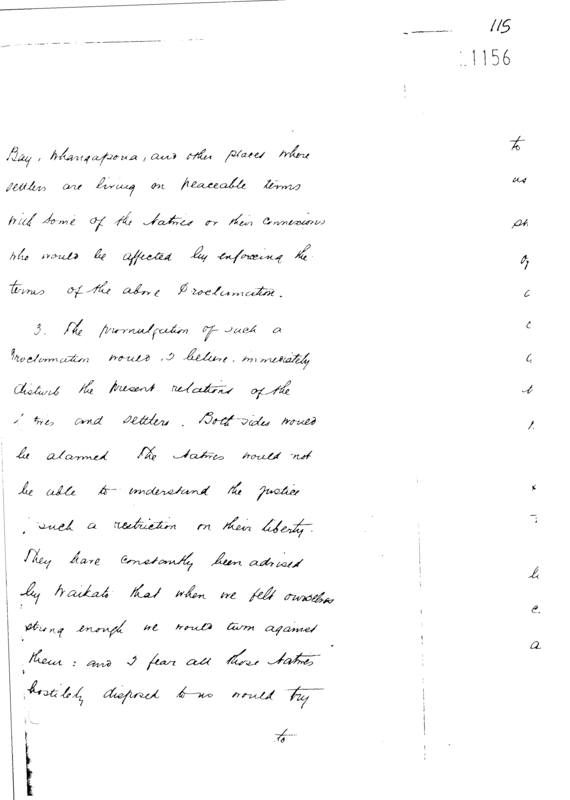 115
1156
Bay, Whangapoua, and other places where
settlers are living on peaceable terms
with some of the Natives or their connexions
who would be affected by enforcing the
terms of the above Proclamation.
3. The promulgation of such a
Proclamation would, I believe, immediately
disturb the present relations of the
and settlers. Both sides would
be alarmed The Natives would not
be able to understand the justice
such a restriction on their liberty.
They have constantly been advised
by Waikato that when we felt ourselves
strong enough we would turn against
them: and I fear all those Natives
hostilely disposed to us would try
to
to
us